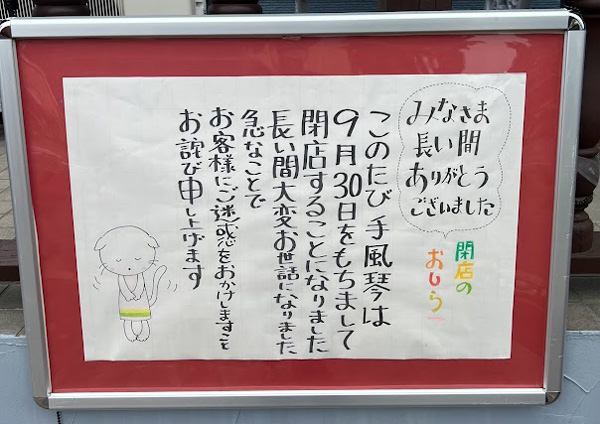 みなさま
長い間
ありがとう
ございました
閉店の
おしらせ
このたび手風琴は
9月30日をもちまして
閉店することになりました
長い間大変お世話になりました
急なことで
お客様にご迷惑をおかけしますこと
お詫び申し上げます